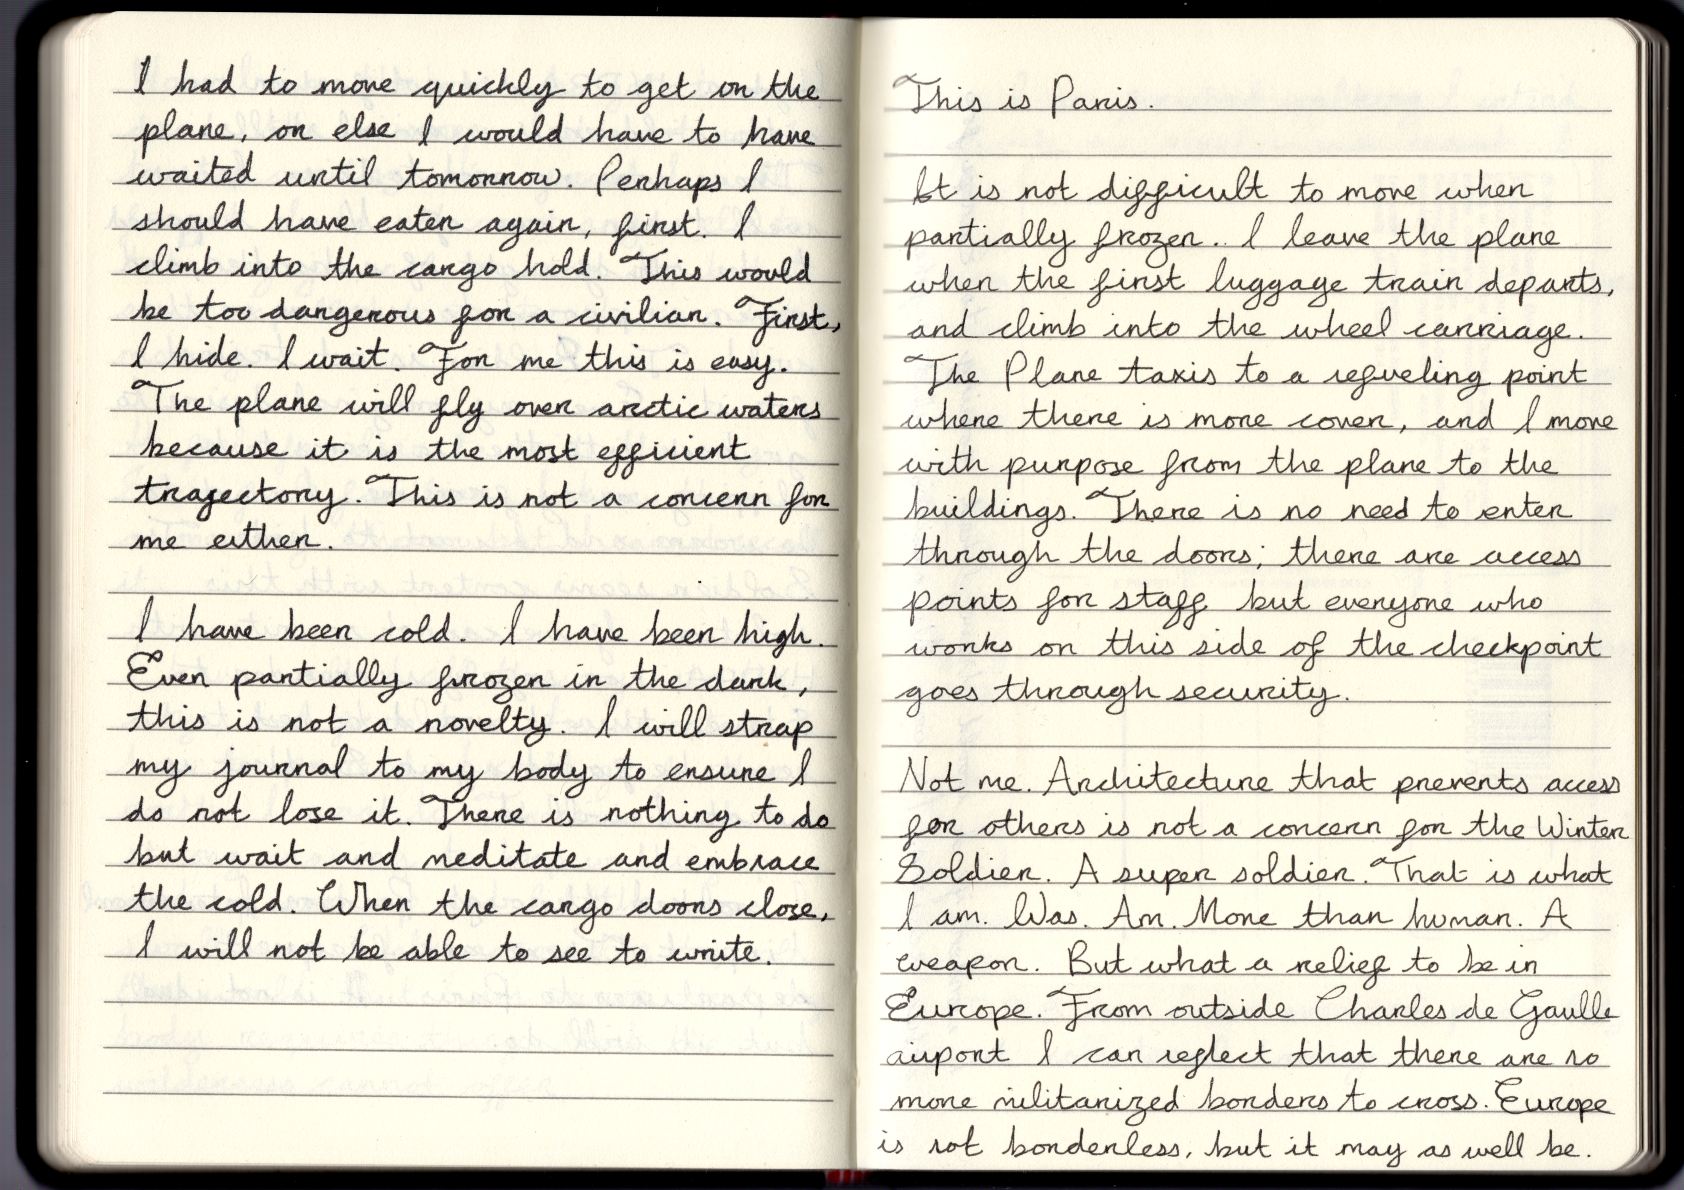 I had to move quickly to get on the
plane, or else I would have to have
waited until tomorrow. Perhaps I
should have eaten again, first. I
climb into the cargo hold. This would
be too dangerous for a civilian. First,
I hide. I wait. For me this is easy.
The plane will fly over arctic waters
because it is the most efficient
trajectory. This is not a concern for
me either.
I have been cold. I have been high.
Even partially frozen in the dark,
this is not a novelty. I will strap
my journal to my body to ensure I
do not lose it. There is nothing to do
but wait and meditate and embrace
the cold. When the cargo doors close,
I will not be able to see to write.
This is Paris.
It is not difficult to move when
partially frozen.. I leave the plane
when the first luggage train departs,
and climb into the wheel carriage.
The Plane taxis to a refueling point
where there is more cover, and I move
with purpose from the plane to the
buildings. There is no need to enter
through the doors; there are access
points for staff but everyone who
works on this side of the checkpoint
goes through security.
Not me. Architecture that prevents access
for others is not a concern for the Winter
Soldier. A super soldier. That is what
I am. Was. Am. More than human. A
weapon. But what a relief to be in
Europe. From outside Charles de Gaulle
airport I can reflect that there are no
more militarized borders to cross. Europe
is not borderless, but it may as well be.